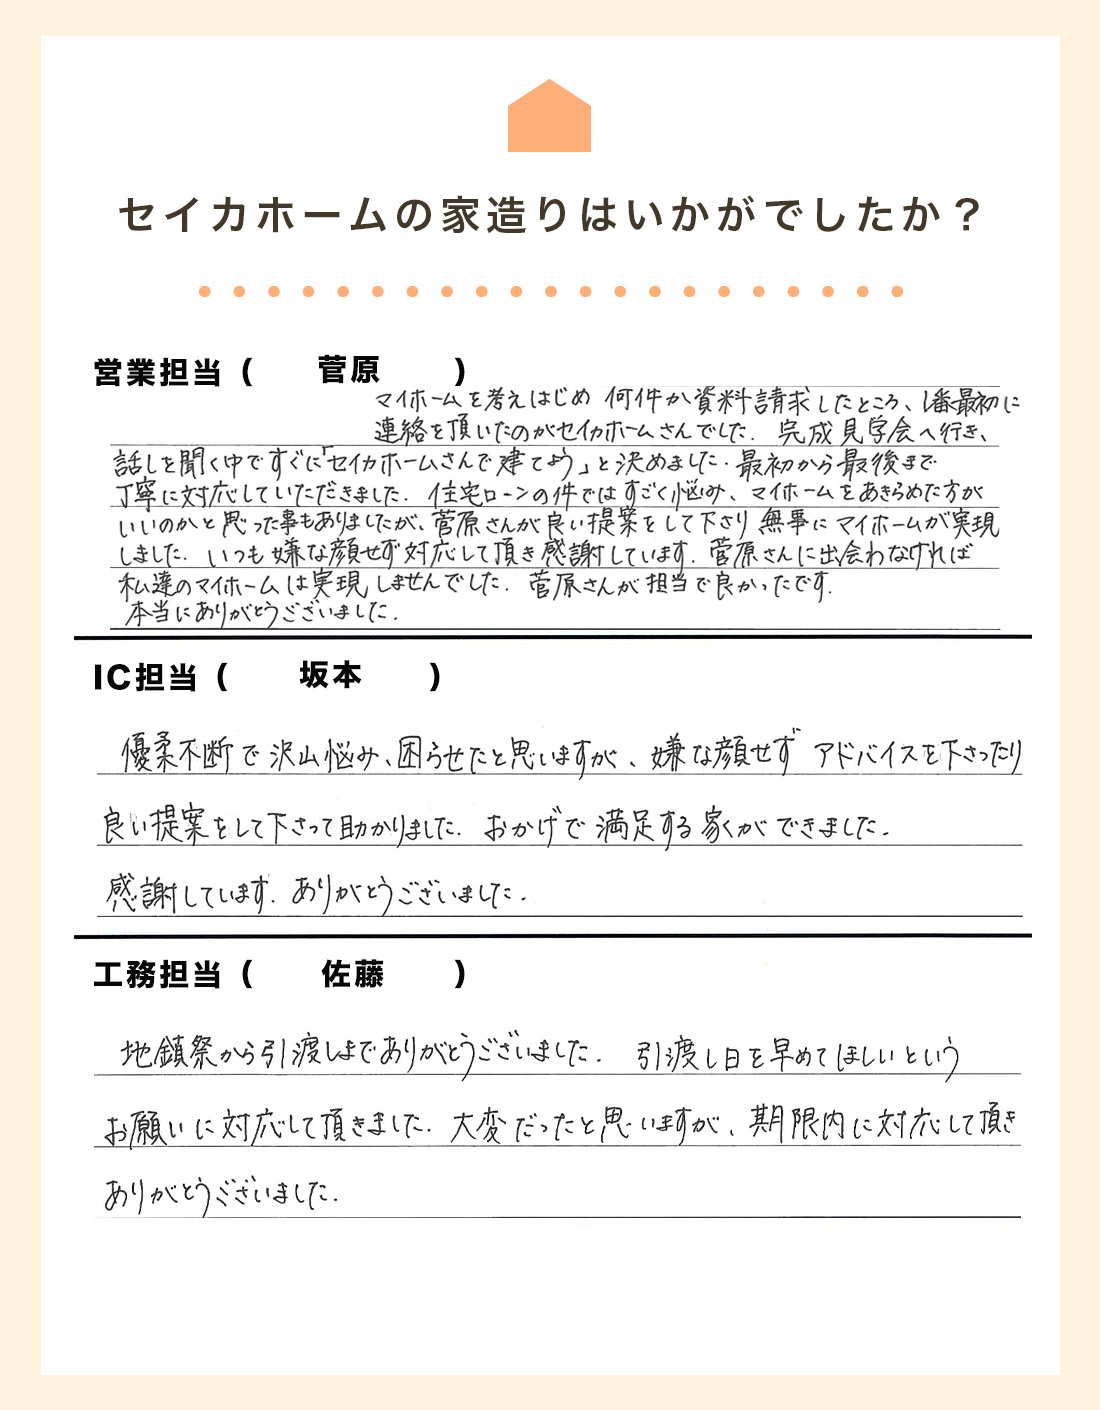 セイカホームの家造りはいかがでしたか？
営業担当（　菅原　）
マイホームを考えはじめ 何件か資料請求したところ、1番最初に
連絡を頂いたのがセイカホームさんでした. 完成見学会へ行き、
話しを聞く中ですぐに「セイカホームさんで建てよう」と決めました. 最初から最後まで
丁寧に対応していただきました. 住宅ローンの件ではすごく悩み、マイホームをあきらめた方が
いいのかと思った事もありましたが、菅原さんが良い提案をして下さり 無事にマイホームが実現
しました. いつも嫌な顔せず対応して頂き感謝しています. 菅原さんに出会わなければ
私達のマイホームは実現しませんでした. 菅原さんが担当で良かったです.
本当にありがとうございました.
IC担当（　坂本　）
優柔不断で沢山悩み、困らせたと思いますが、嫌な顔せず アドバイスを下さったり
良い提案をして下さって助かりました. おかげで満足する家ができました.
感謝しています. ありがとうございました.
工務担当（　佐藤　）
地鎮祭から引渡しまでありがとうございました. 引渡し日を早めてほしいという
お願いに対応して頂きました. 大変だったと思いますが、期限内に対応して頂き
ありがとうございました.